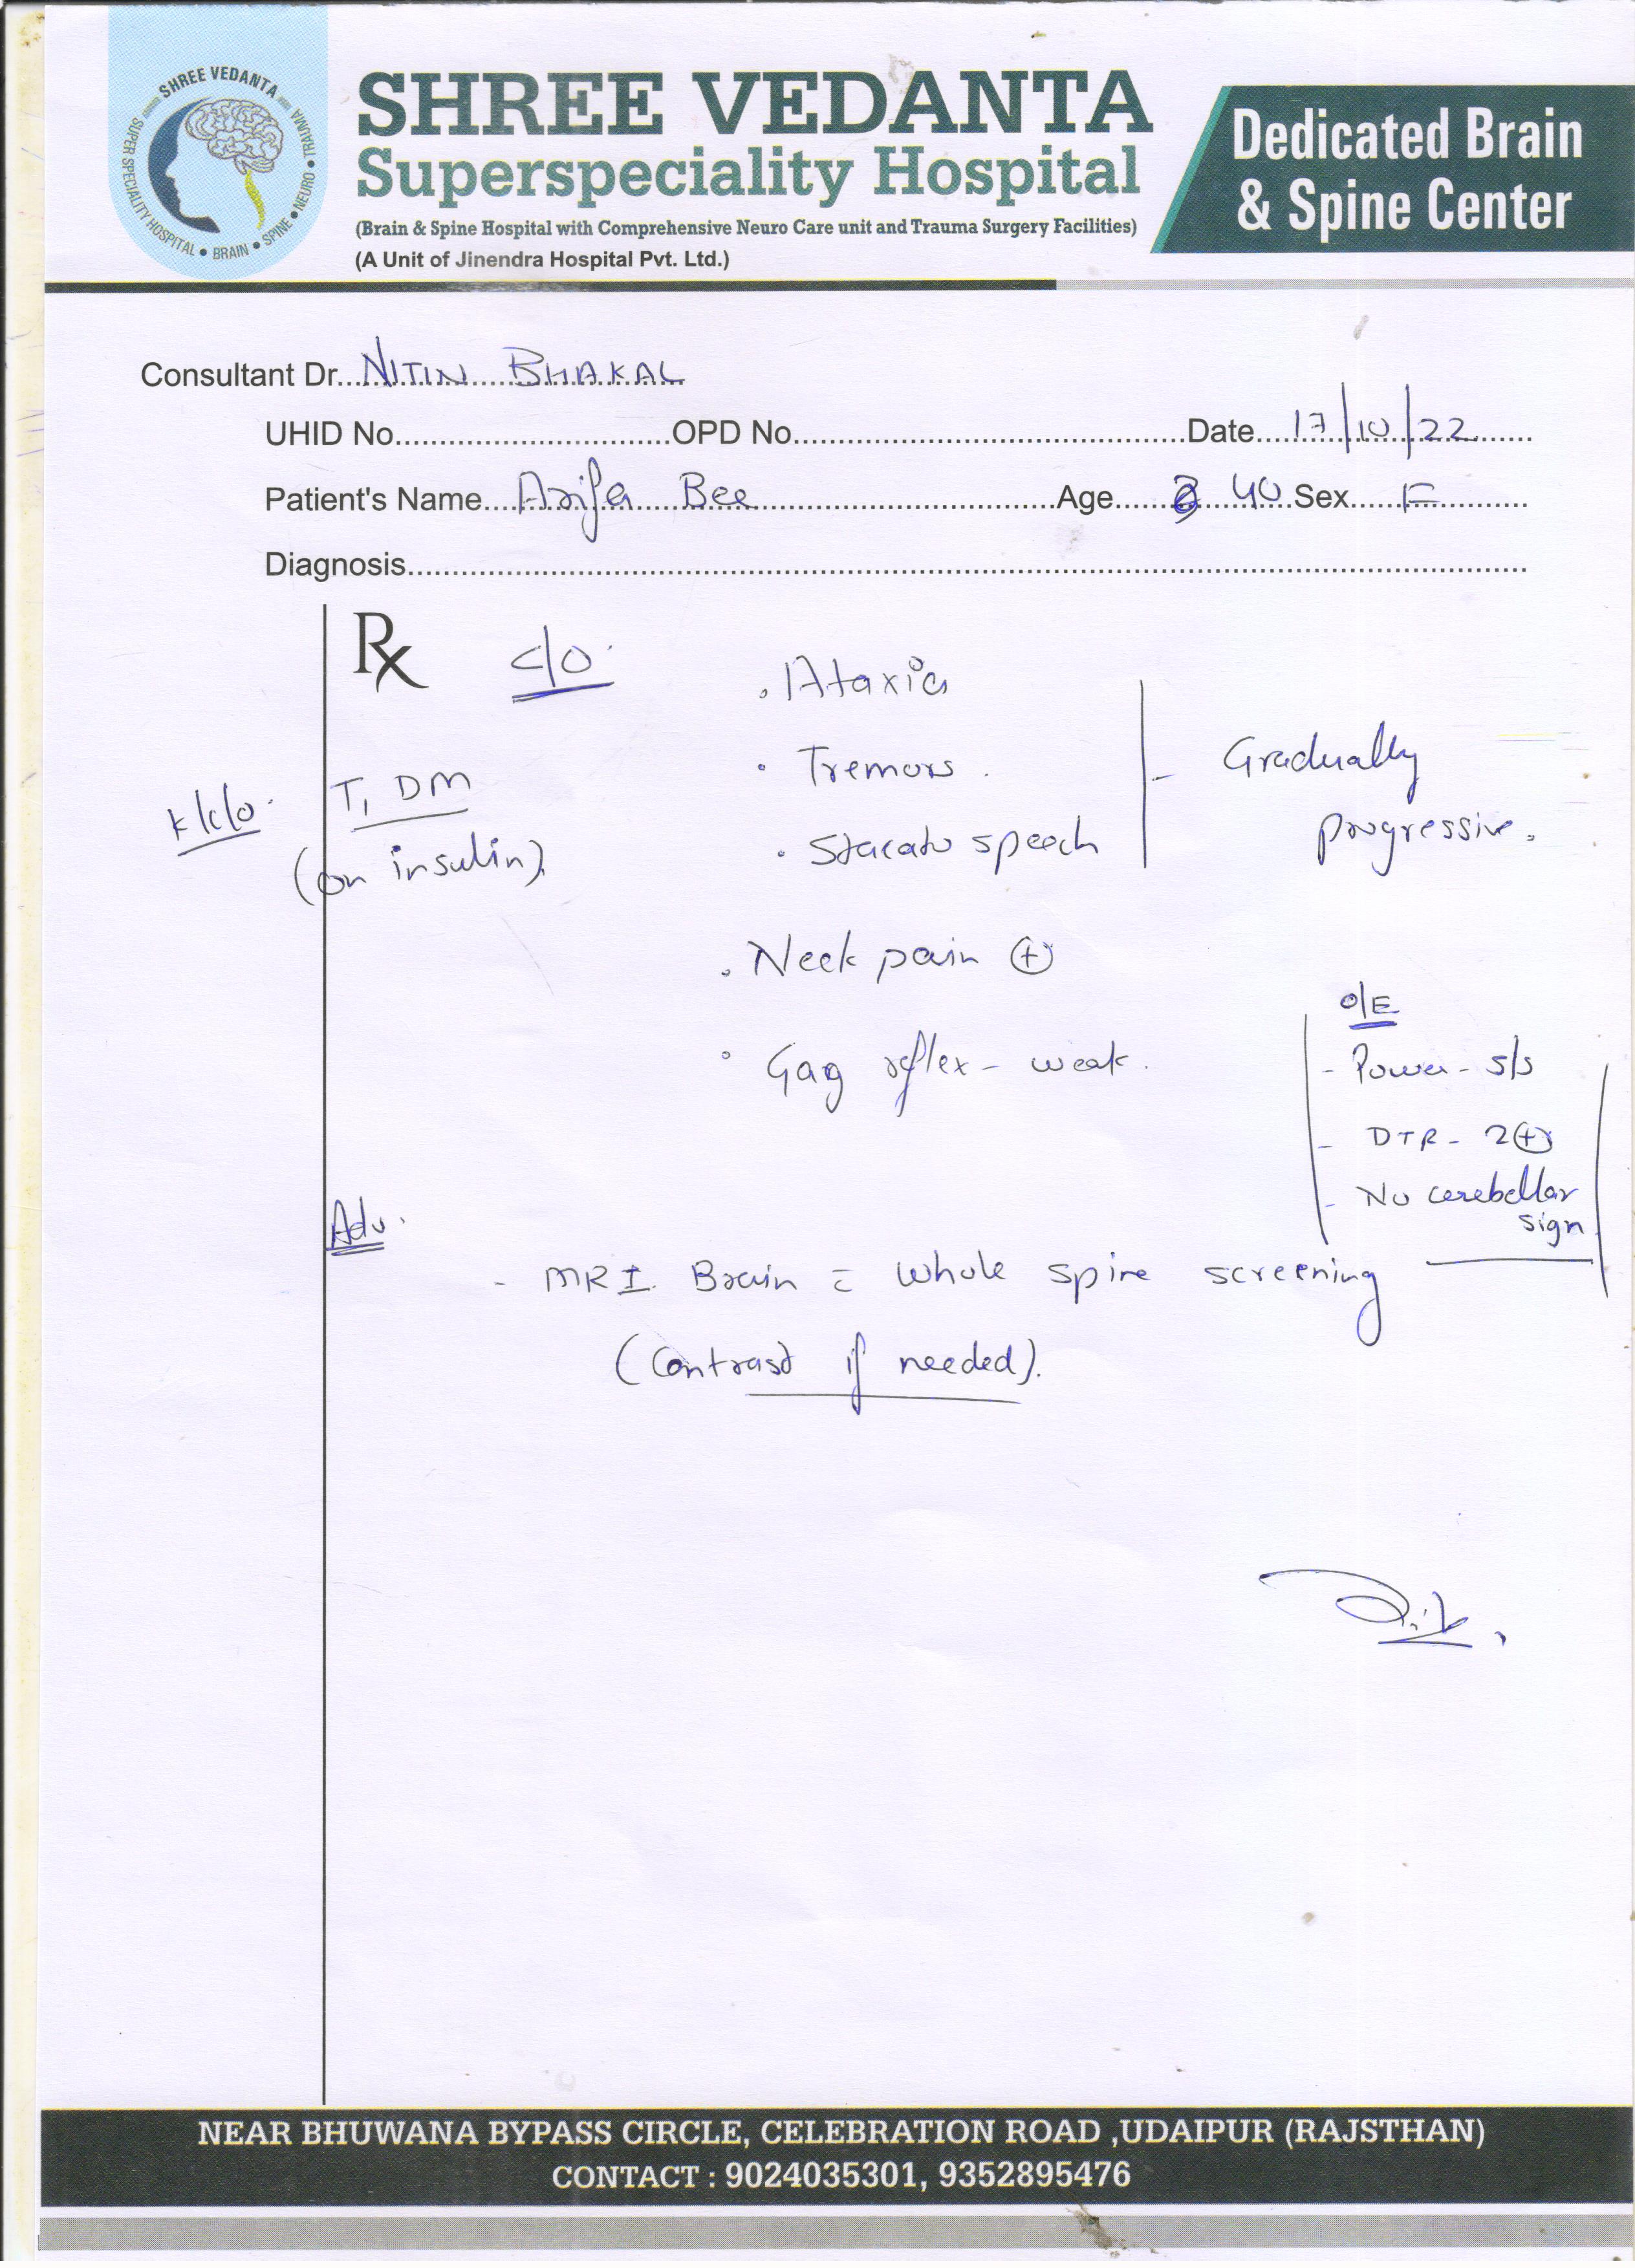 SHREE VEDANTA
SUPER SPECIALITY HOSPITAL • BRAIN • SPINE • NEURO • TRAUMA
SHREE VEDANTA
Superspeciality Hospital
(Brain & Spine Hospital with Comprehensive Neuro Care unit and Trauma Surgery Facilities)
(A Unit of Jinendra Hospital Pvt. Ltd.)
Dedicated Brain
& Spine Center
Consultant Dr. NITIN BHAKAL
UHID No. OPD No. Date 17/10/22
Patient's Name Arifa Bee Age 40 Sex F
Diagnosis
Rx c/o.
. Ataxia
. Tremors.
. Stacato speech
- Gradually
progressive.
k/c/o. T1 DM
(on insulin)
. Neck pain (+)
. Gag reflex - weak.
O/E
- Power - 5/5
- DTR - 2(+)
- No cerebellar
sign
Adv.
- MRI Brain c̄ whole spine screening
(Contrast if needed).
NEAR BHUWANA BYPASS CIRCLE, CELEBRATION ROAD ,UDAIPUR (RAJSTHAN)
CONTACT : 9024035301, 9352895476